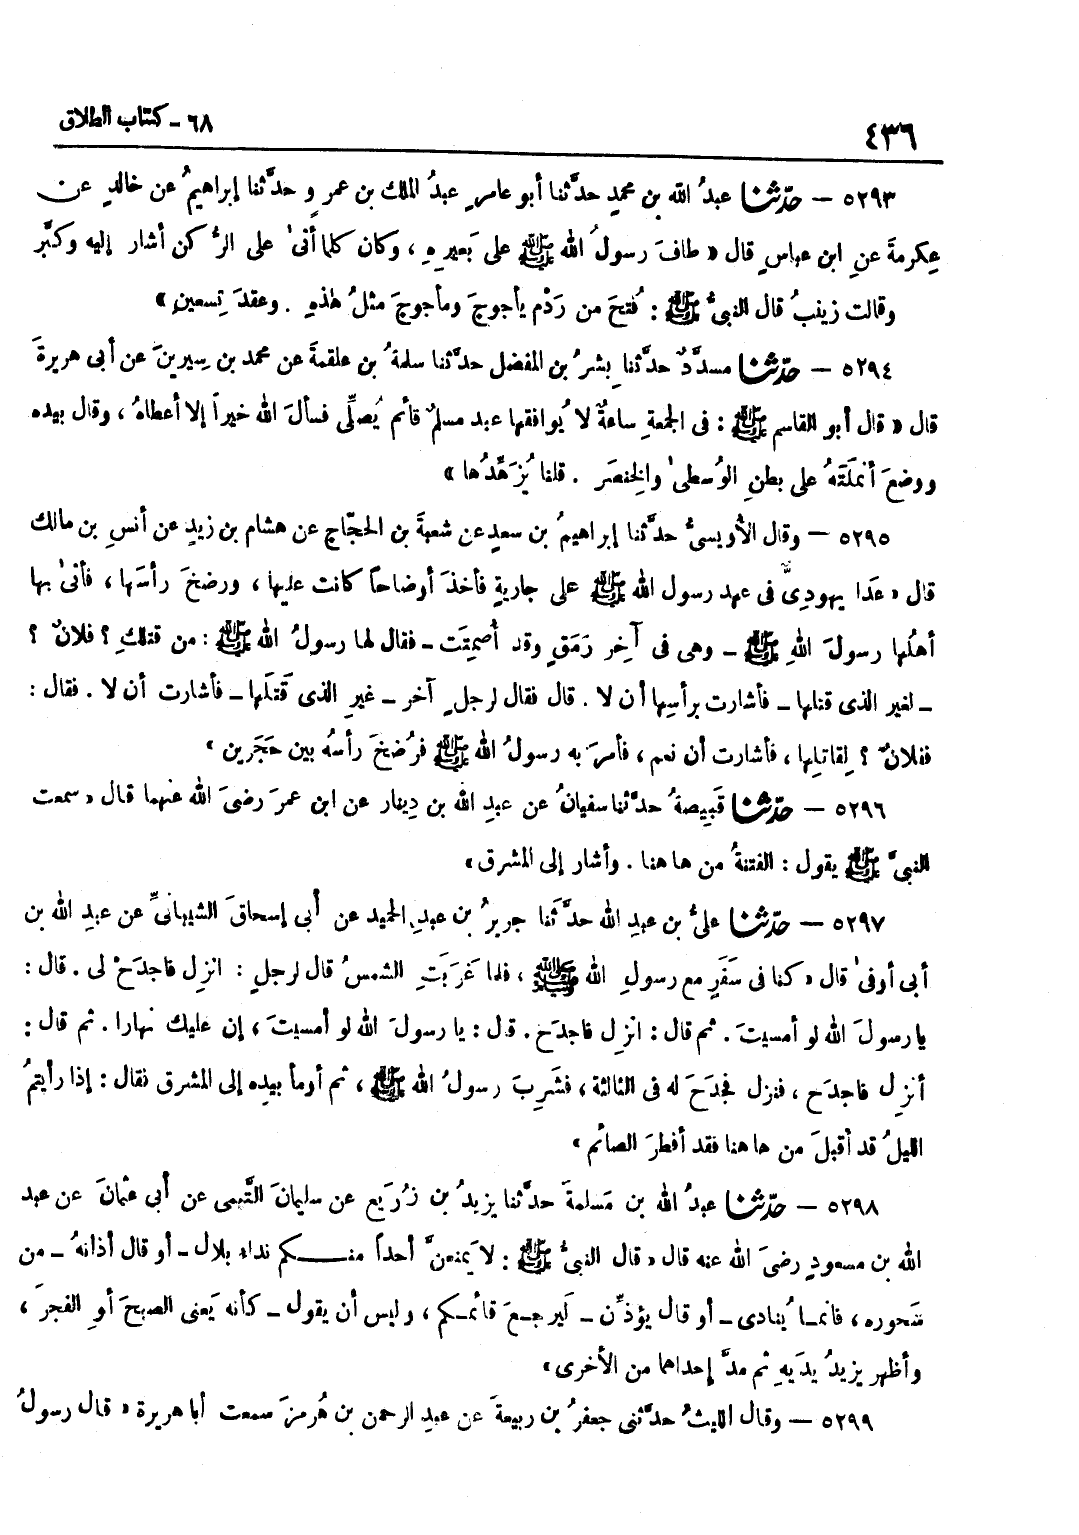 ٤٣٦
٦٨ - كتاب الطلاق
٥٢٩٣ — حدّثنا عبدُ الله بن محمدٍ حدَّثنا أبو عامرٍ عبدُ الملك بن عمرٍو حدَّثنا إبراهيمُ عن خالدٍ عن
عِكرمةَ عنِ ابن عباسٍ قال « طافَ رسولُ الله ﷺ على بَعيرِهِ ، وكان كلما أتىٰ على الرُّكن أشار إليه وكبَّر
وقالت زينبُ قال النبيُّ ﷺ : فُتحَ من رَدْم يأجوجَ ومأجوجَ مثلُ هٰذهِ . وعقدَ تِسعين »
٥٢٩٤ — حدّثنا مسدَّدٌ حدَّثنا بِشرُ بن المفضل حدَّثنا سلمةُ بن علقمةَ عن محمد بن سِيرينَ عن أبى هريرةَ
قال « قال أبو القاسم ﷺ : فى الجمعةِ ساعةٌ لا يُوافقها عبد مسلمٌ قائم يُصلِّى فسألَ الله خيراً إلا أعطاهُ ، وقال بيده
ووضعَ أنملَتَهُ على بطنِ الوُسطىٰ والخِنصَر . قلنا يُزَهِّدُها »
٥٢٩٥ — وقال الأُويسىُّ حدَّثنا إبراهيمُ بن سعدٍ عن شعبةَ بن الحجّاج عن هشام بن زيدٍ عن أنسِ بن مالك
قال « عَدا يهودىٌّ فى عهد رسول الله ﷺ على جاريةٍ فأخذَ أوضاحاً كانت عليها ، ورضخَ رأسَها ، فأتىٰ بها
أهلُها رسولَ اللهِ ﷺ - وهى فى آخِر رَمَقٍ وقد أُصمِتَت - فقال لها رسولُ الله ﷺ : من قتلكِ ؟ فلانٌ ؟
- لغير الذى قتلها - فأشارت برأسِها أن لا . قال فقال لرجلٍ آخر - غيرِ الذى قَتلَها - فأشارت أن لا . فقال :
ففلانٌ ؟ لِقاتلِها ، فأشارت أن نعم ، فأمرَ به رسولُ الله ﷺ فرُضخَ رأسُهُ بين حَجَرين »
٥٢٩٦ — حدّثنا قَبِيصةُ حدَّثنا سفيانُ عن عبدِ الله بن دِينار عن ابن عمرَ رضىَ الله عنهما قال « سمعت
النبىَّ ﷺ يقول : الفتنةُ من ها هنا . وأشار إلى المشرق »
٥٢٩٧ — حدّثنا علىُّ بن عبدِ الله حدَّثنا جريرُ بن عبدِ الحميد عن أبى إسحاقَ الشيبانىِّ عن عبدِ الله بن
أبى أوفىٰ قال « كنا فى سَفَرٍ مع رسولِ الله ﷺ ، فلما غَرَبَتِ الشمسُ قال لرجلٍ : انزِل فاجدَحْ لى . قال :
يا رسولَ الله لو أمسيتَ . ثم قال : انزِل فاجدَح . قال : يا رسولَ الله لو أمسيتَ ، إن عليك نهارا . ثم قال :
أنزِل فاجدَح ، فنزل فجدَحَ له فى الثالثة ، فشَرِبَ رسولُ الله ﷺ ، ثم أومأ بيدِه إلى المشرق فقال : إذا رأيتمُ
الليلُ قد أقبلَ من ها هنا فقد أفطرَ الصائم »
٥٢٩٨ — حدّثنا عبدُ الله بن مَسلمةَ حدَّثنا يزيدُ بن زُرَيع عن سليمانَ التَّيمى عن أبى عثمانَ عن عبد
الله بن مسعودٍ رضىَ الله عنه قال « قال النبىُّ ﷺ : لا يَمنعنَّ أحداً منكم نداء بلال - أو قال أذانهُ - من
سَحوره ، فانما يُنادى - أو قال يؤذِّن - لَيرجعَ قائمكم ، وليس أن يقول - كأنه يَعنى الصبحَ أوِ الفجرَ ،
وأظهر يزيدُ يدَيهِ ثم مدَّ إحداهما من الأخرى »
٥٢٩٩ — وقال الليثُ حدَّثنى جعفرُ بن ربيعةَ عن عبدِ الرحمن بن هُرمزَ سمعت أبا هريرة « قال رسولُ